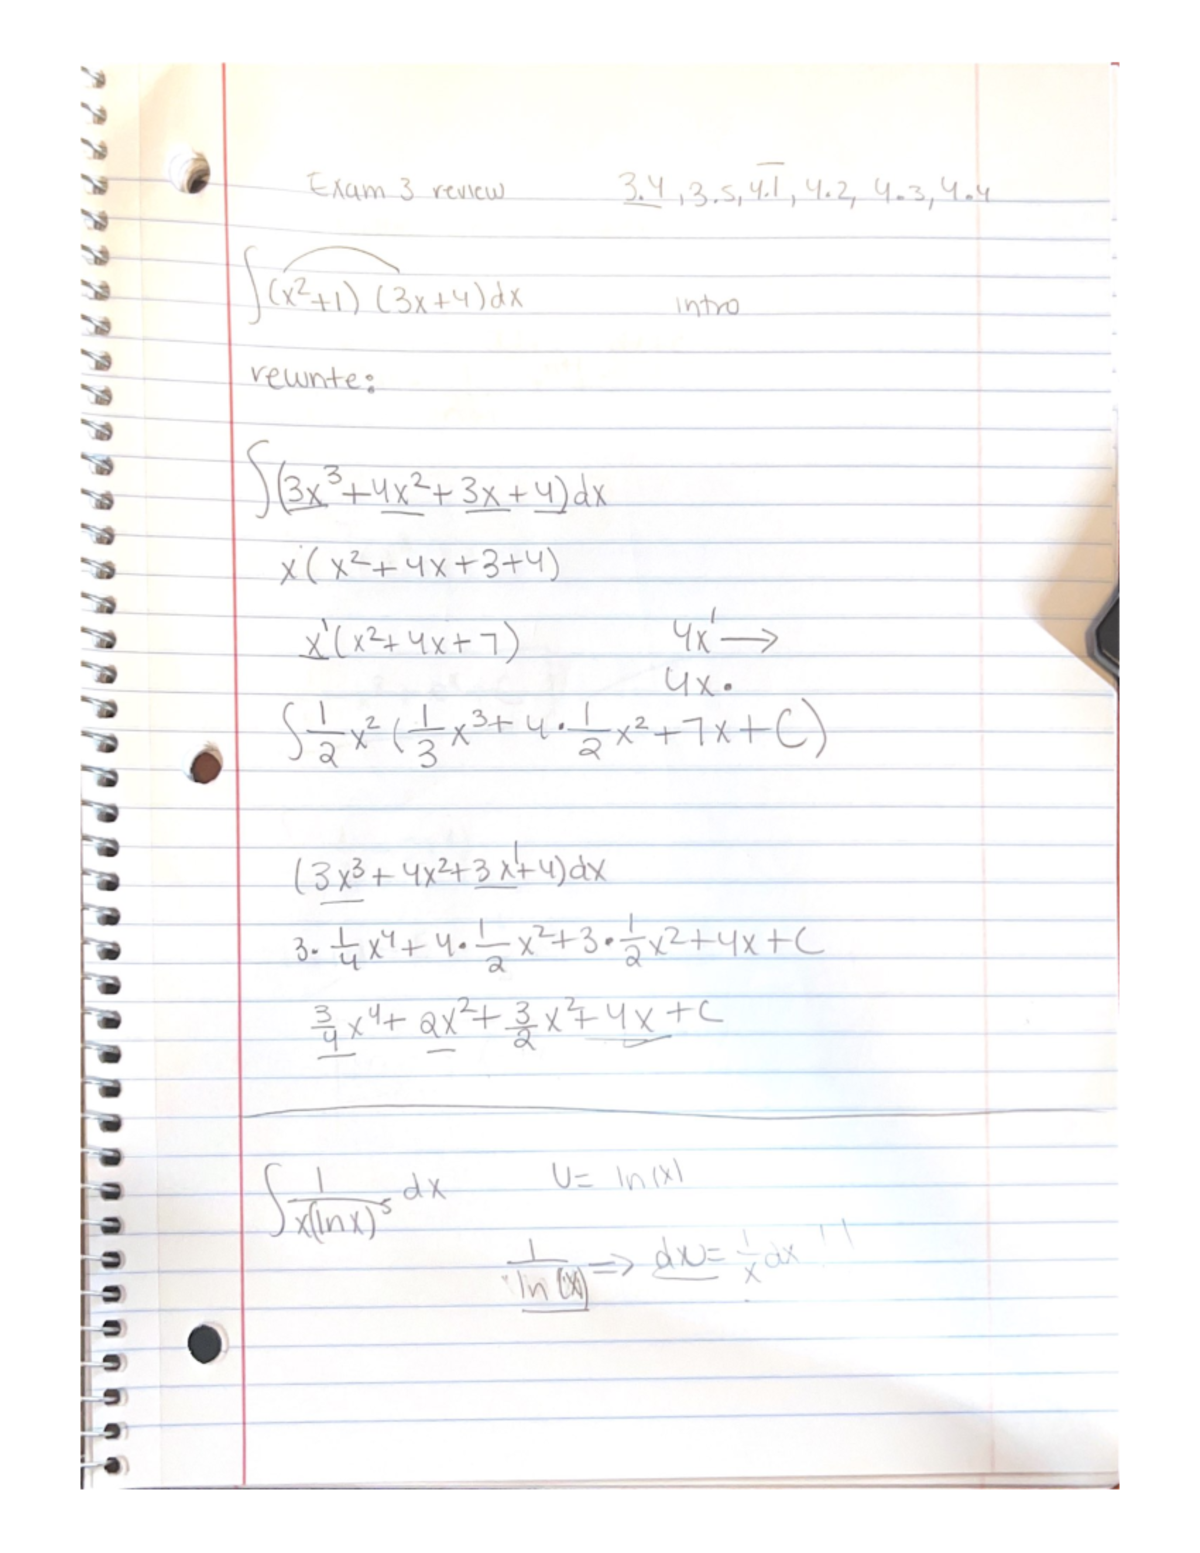 Exam 3 review 3.4, 3.5, 4.1, 4.2, 4.3, 4.4
∫(x²+1) (3x+4)dx intro
rewrite:
∫(3x³+4x²+3x+4)dx
x(x²+4x+3+4)
x¹(x²+4x+7) 4x¹→
4x.
∫1/2 x² (1/3 x³+4·1/2 x²+7x+C)
(3x³+4x²+3x¹+4)dx
3·1/4 x⁴+4·1/2 x²+3·1/2 x²+4x+C
3/4 x⁴+2x²+3/2 x²+4x+C
∫1/(x(lnx)⁵) dx U= ln(x)
1/ln(x) ⇒ du=1/x dx